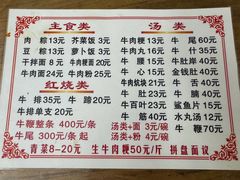 主食类 汤类
肉粽13元 芥菜饭3元 牛肉粳13元 牛尾60元
豆粽10元 萝卜饭3元 牛肉16元 牛什35元
干拌面8元 牛肉粳面20元 牛腩16元 牛肚岸40元
牛肉面24元 牛肉粉25元 牛心16元 金钱肚40元
红烧类 牛肉炊块21元 牛舌50元
牛排35元 牛蹄20元 牛肚21元 牛筋50元
牛排单支20元 牛百叶23元 鲨鱼片15元
牛鞭整条400元/条 牛筋50元 水丸汤12元
牛尾300元/条起 汤类+面3元/碗 牛鞭70元
汤类+粉4元/碗
青菜8-20元 生牛肉粳50元/斤 拼盘面议